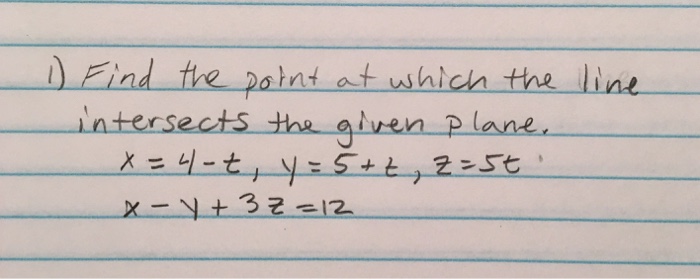 1) Find the point at which the line
intersects the given plane.
x = 4-t, y = 5+t, z = 5t
x - y + 3z = 12